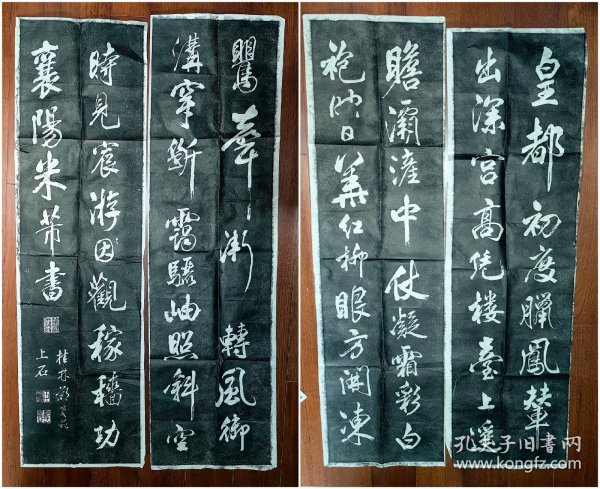 皇都初度臘鳳輦
出深宮高凭樓臺上遙
瞻灞滻中仗凝霜彩白
袍映日華紅柳眼方開凍
鶯聲漸轉風御
溝穿斷靄驪岫照斜空
時見宸游因觀稼穡功
襄陽米芾書
桂林
上石
孔夫子旧书网
www.kongfz.com